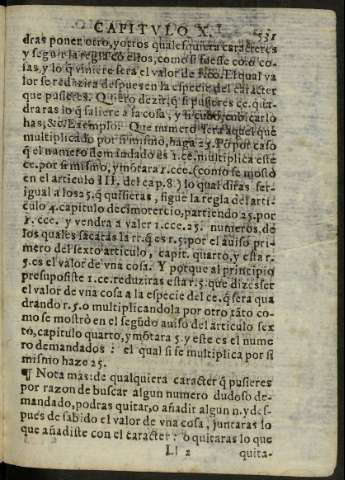 CAPITVLO X. 531
dras poner otro, y otros qualesquiera caracteres
y seguir la regla cõ ellos, como si fuesse cõ co-
sas, y lo q̃ viniere sera el valor de El qual va
lor se reduzira despues en la especie del caracter
que pusieres. Quiero dezir, q̃ si pusieres ce. qua-
draras lo q̃ saliere a la cosa, y si cubo, cubicarlo
has, &c. Exemplo. Que numero sera aquel que
multiplicado por si mismo, haga 25. Põ por caso
q̃ el numero demandado es 1. ce. multiplica este
ce. por si mismo, y mõtara 1. cce. (como se mostò
en el articulo III. del cap. 8.) lo qual diras ser-
igual a los 25. q̃ quisieras, sigue la regla del arti-
culo 4. capitulo decimotercio, partiendo 25. por
1. cce. y vendra a valer 1. cce. 25. numeros, de
los quales sacaràs la rr. q̃ es r. 5. por el auiso pri-
mero del sexto articulo, capit. quarto, y esta r.
5. es el valor de vna cosa. Y porque al principio
presuposiste 1. ce. reduziras esta r. 5. que dize ser
el valor de vna cosa a la especie del ce. q̃ sera qua
drando r. 5. o multiplicandola por otro tãto co-
mo se mostrò en el segũdo auiso del articulo sex
to, capitulo quarto, y mõtara 5. y este es el nume
ro demandados: el qual si se multiplica por si
mismo haze 25.
¶ Nota mas: de qualquiera caracter q̃ pusieres
por razon de buscar algun numero dudoso de-
mandado, podras quitar, o añadir algun n. y des-
pues de sabido el valor de vna cosa, juntaras lo
que añadiste con el caracter: o quitaras lo que
Ll 2 quita-